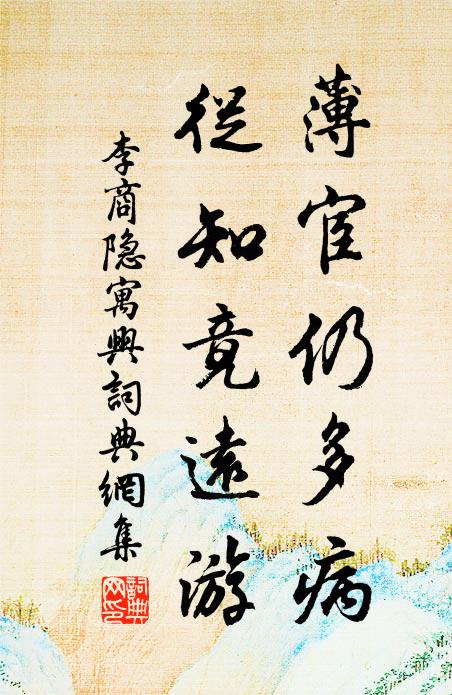 薄宦仍多病
從知竟遠游
李商隐寓興詞典網集
詞典